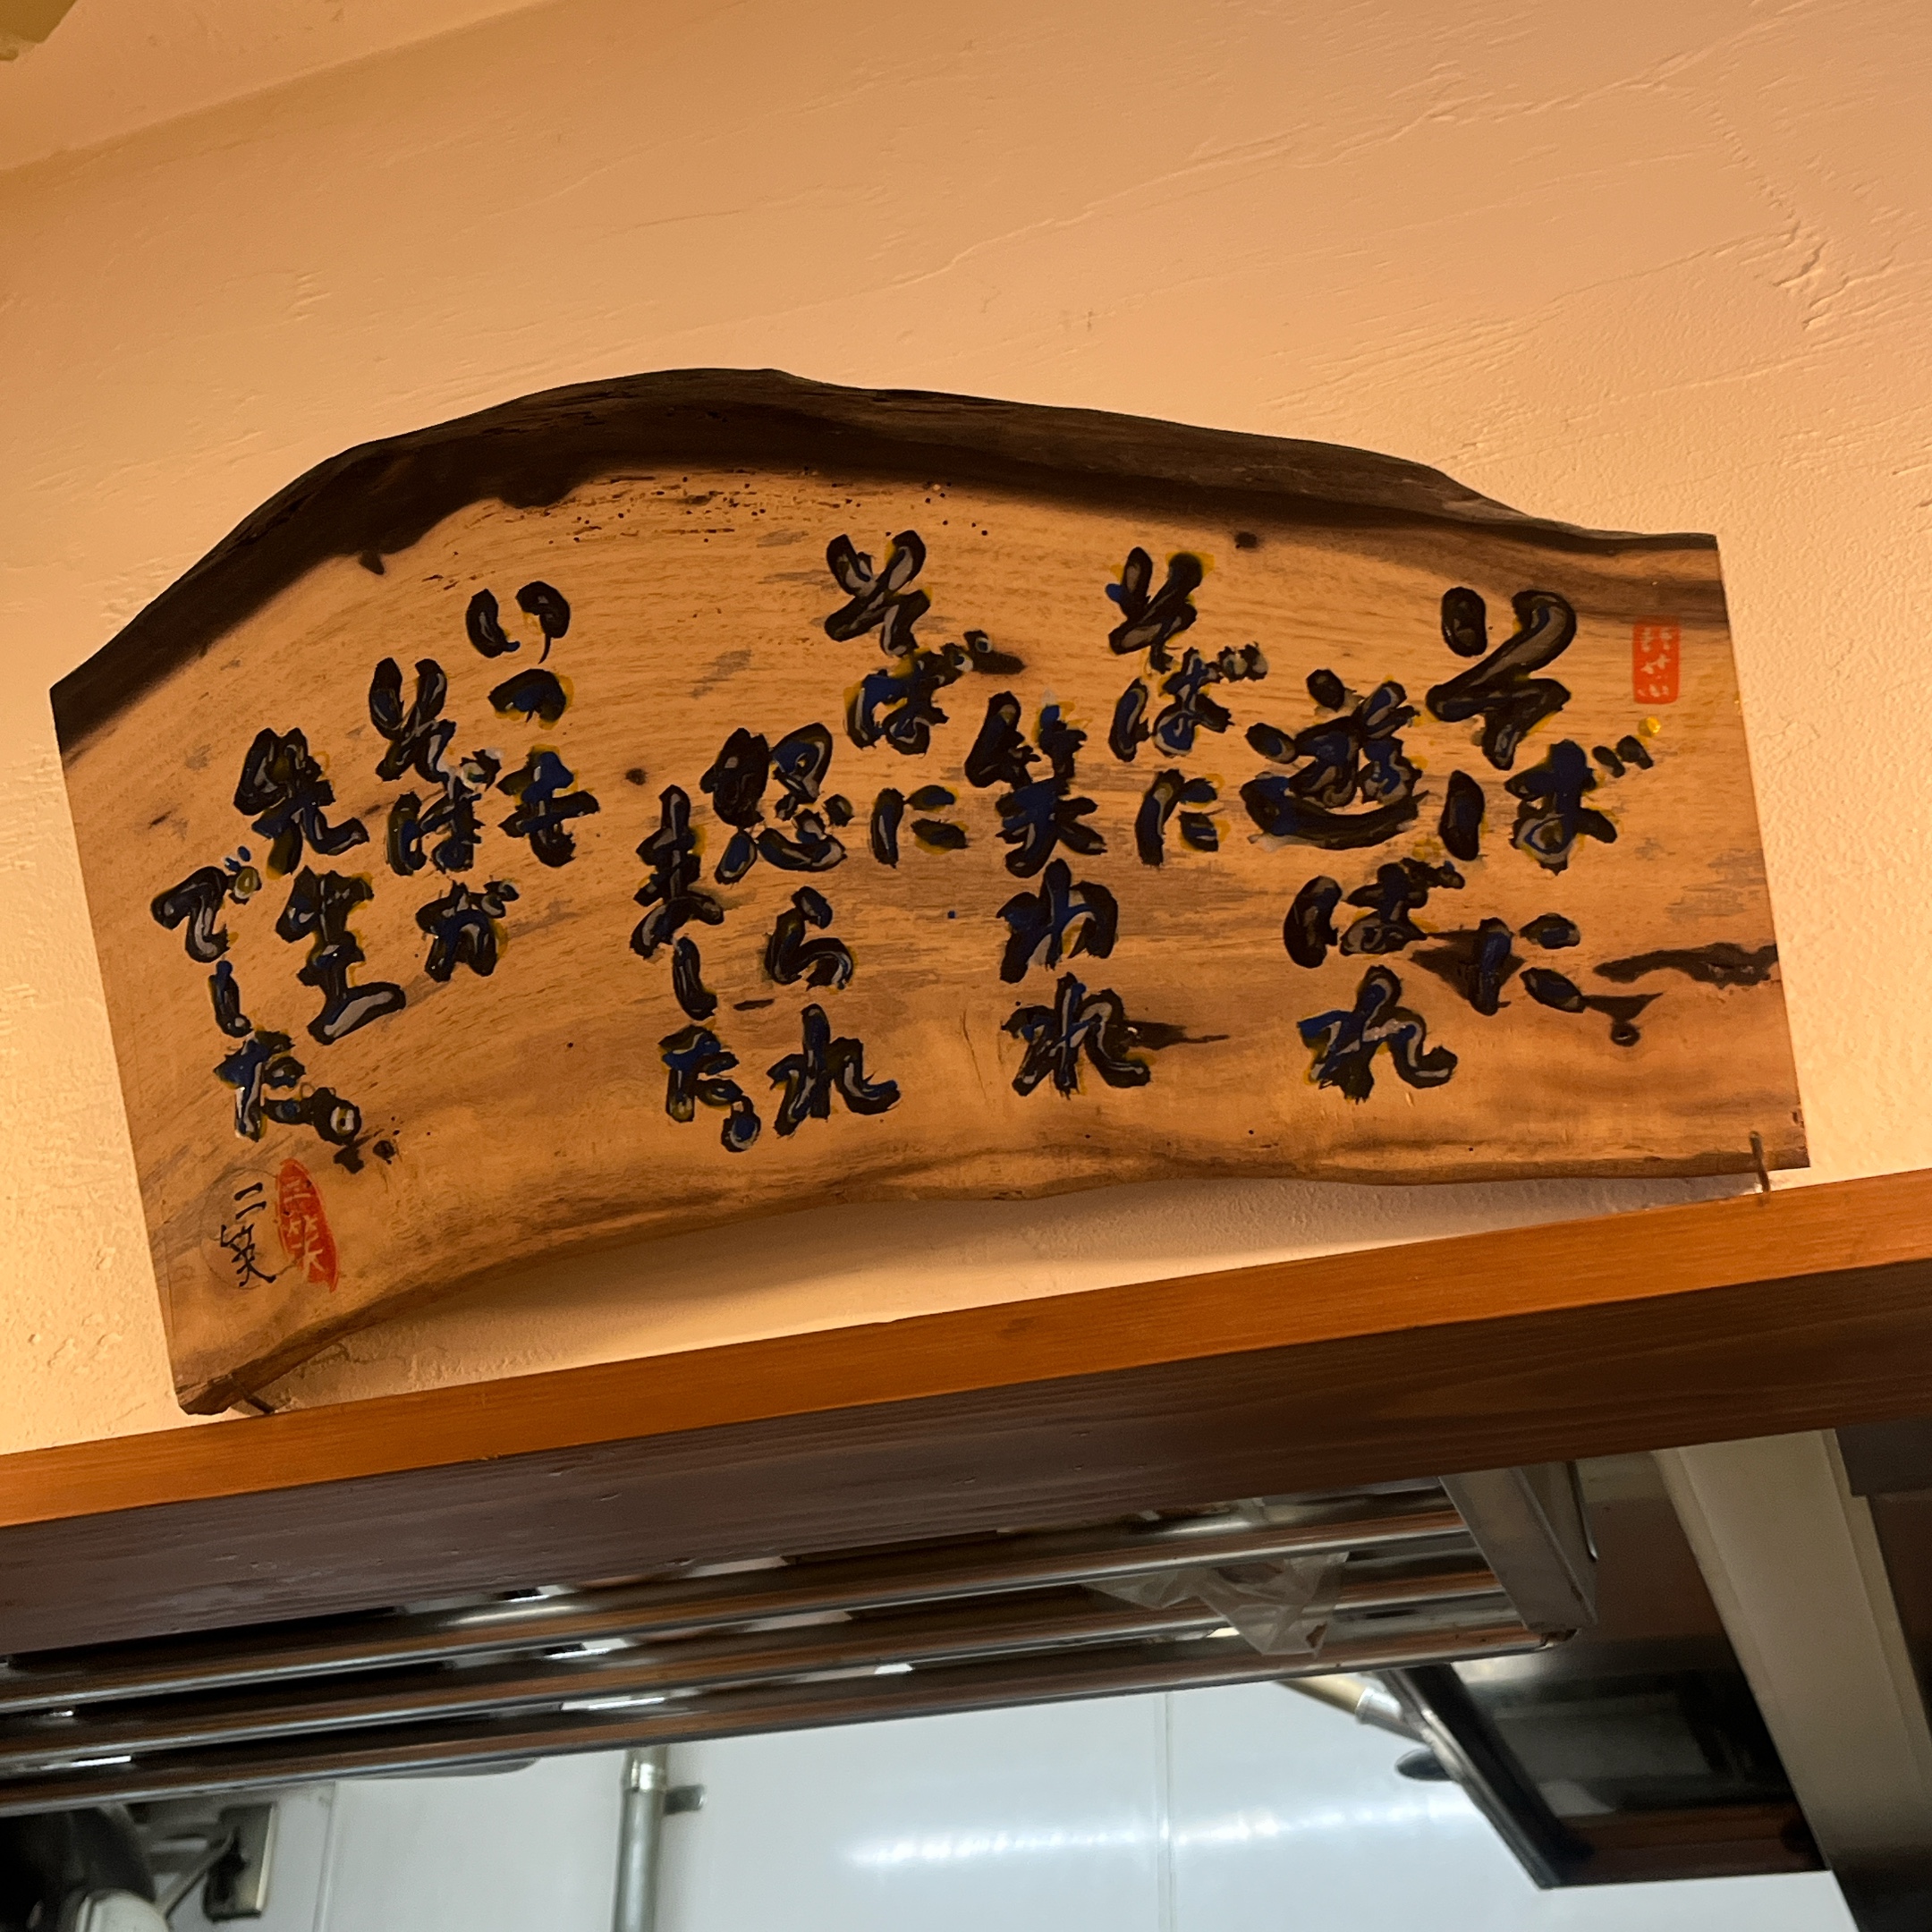 そばに
遊ばれ
そばに
笑われ
そばに
怒られ
ました。
いつも
そばが
先生
でした。
二笑
二笑